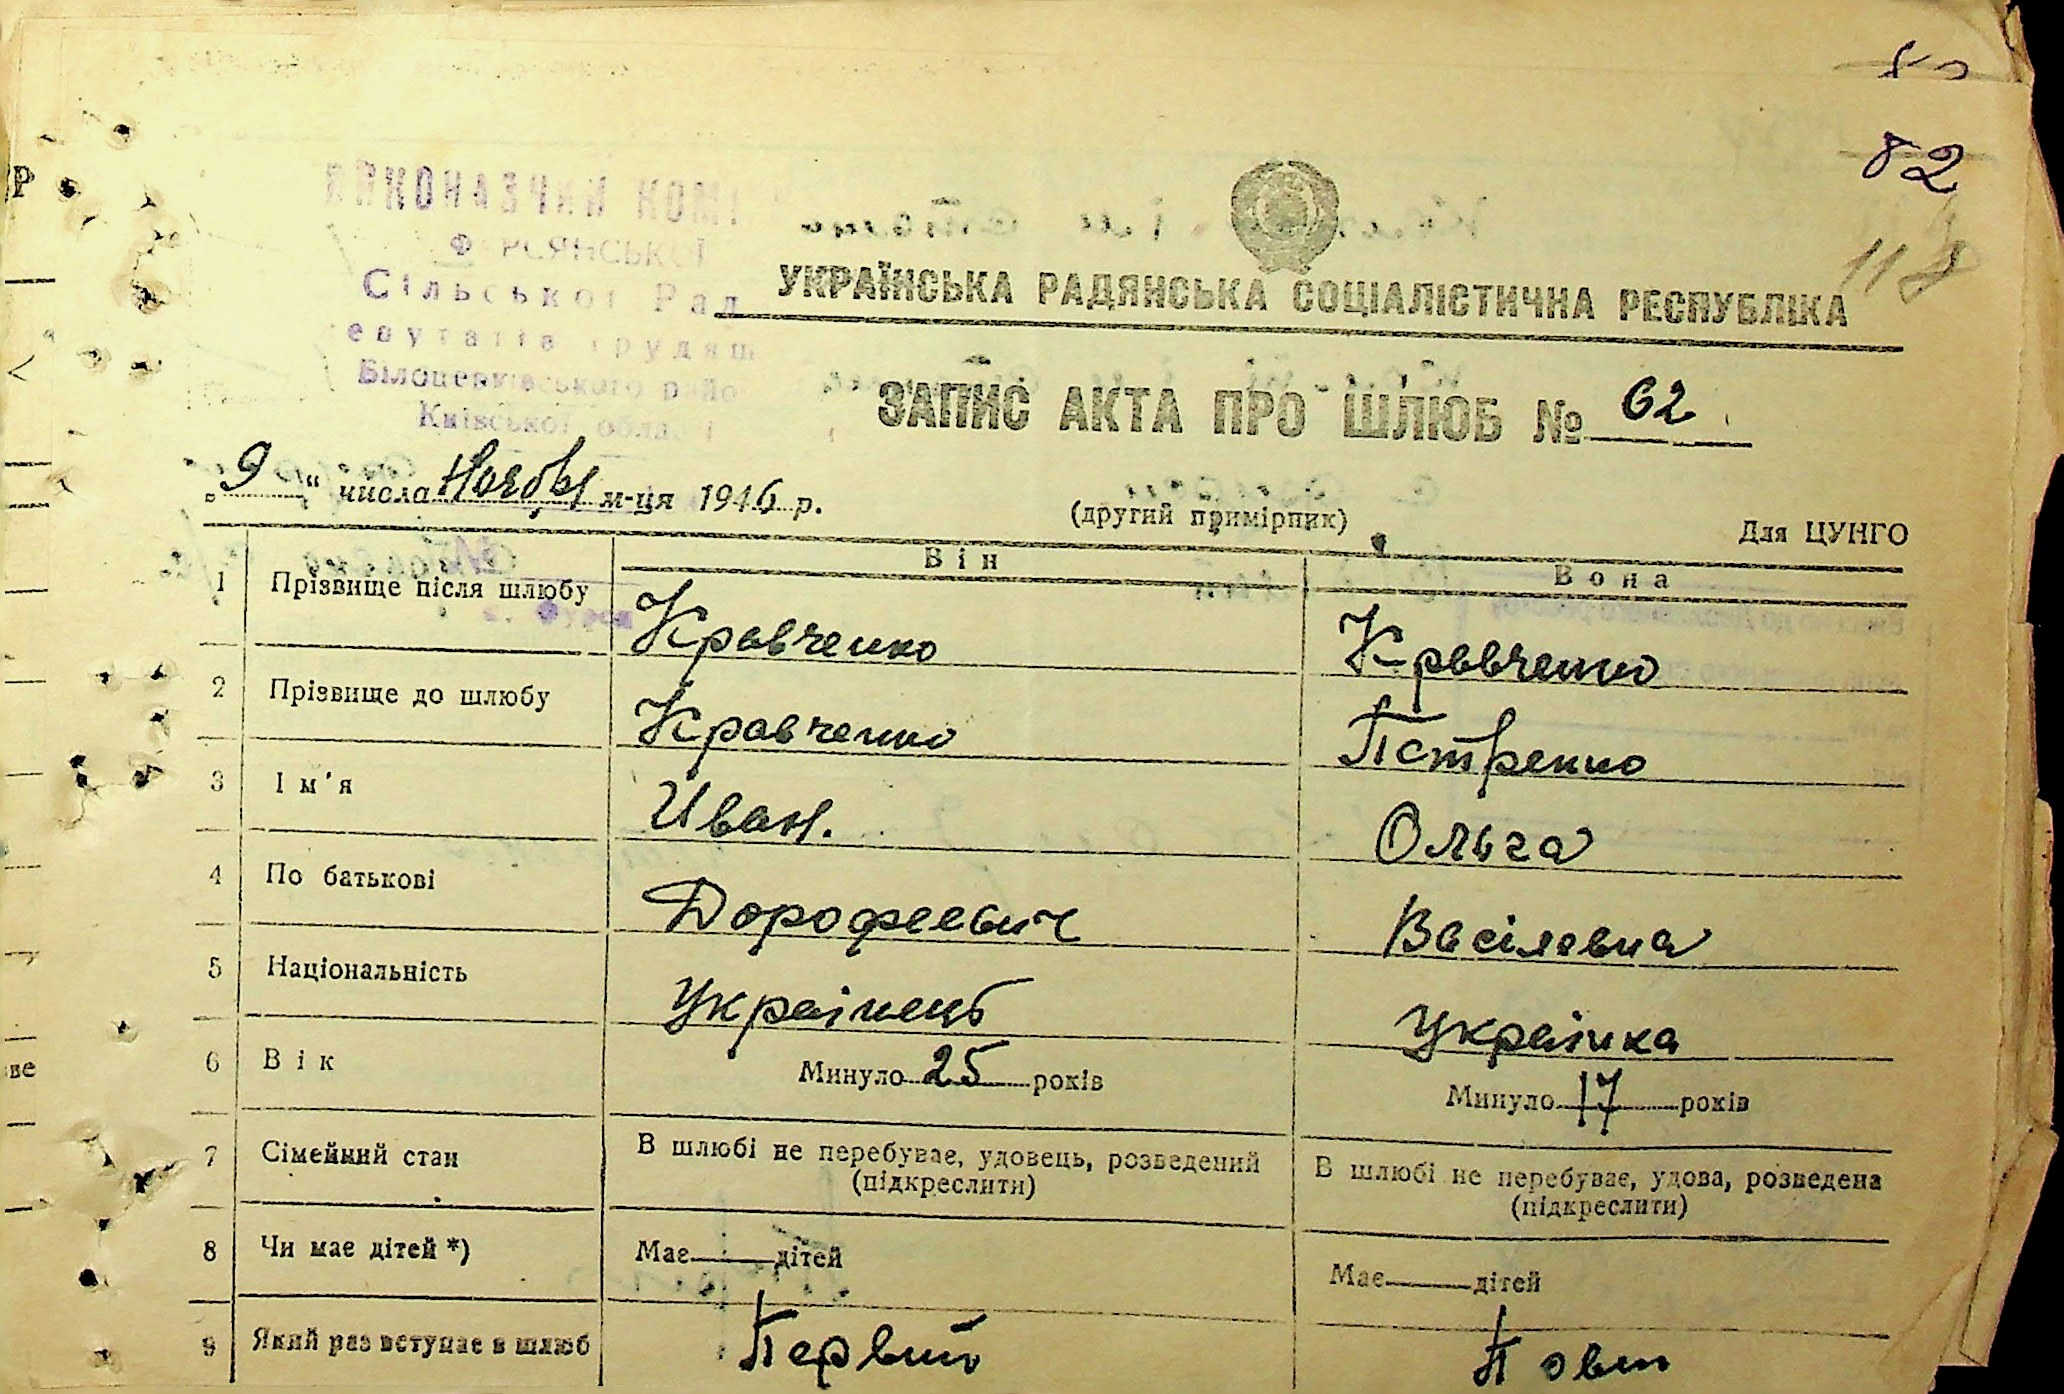 82
118
Сільської Рад
Білоцерківського райо
Київської обла
УКРАЇНСЬКА РАДЯНСЬКА СОЦІАЛІСТИЧНА РЕСПУБЛІКА
ЗАПИС АКТА ПРО ШЛЮБ № 62
„9“ числа Ноября м-ця 1946 р.
(другий примірник)
Для ЦУНГО
Він Вона
1 Прізвище після шлюбу Кравченко Кравченко
2 Прізвище до шлюбу Кравченко Петренко
3 Ім'я Иван. Ольга
4 По батькові Дорофеевич Васілевна
5 Національність Українець Українка
6 Вік Минуло 25 років Минуло 17 років
7 Сімейний стан В шлюбі не перебуває, удовець, розведений В шлюбі не перебуває, удова, розведена
(підкреслити) (підкреслити)
8 Чи має дітей *) Має — дітей Має — дітей
9 Який раз вступає в шлюб Первий